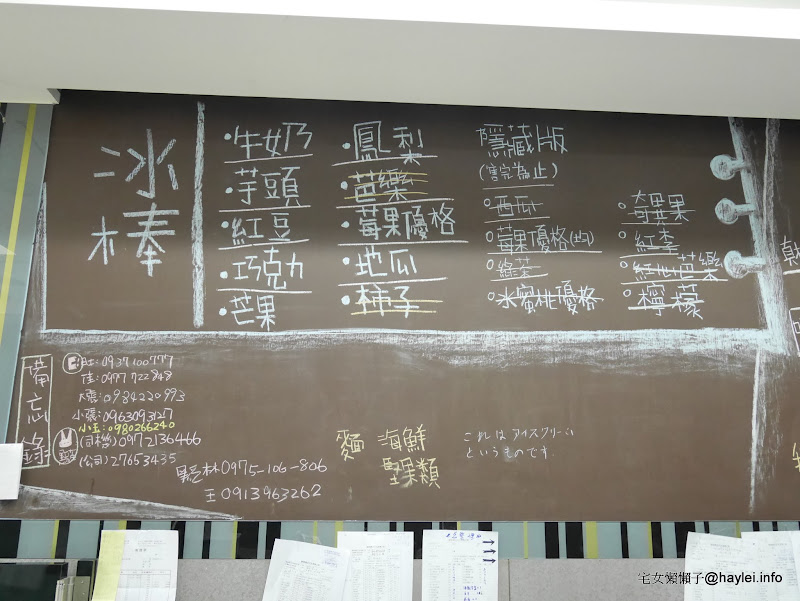 冰棒
牛奶
芋頭
紅豆
巧克力
芒果
鳳梨
芭樂
莓果優格
地瓜
柿子
隱藏版
(售完為止)
西瓜
莓果優格(均)
綠茶
水蜜桃優格
奇異果
紅李
紅心芭樂
檸檬
備忘錄
肛:0937100777
佳:0977722848
大張:0984220993
小張:0963093127
小玉:0980266240
(同樁)0972136466
(公司)27653435
0975-106-806
王0913963262
麵 海鮮
堅果類
これは アイスクリーム
というものです.
宅女懶懶子@haylei.info